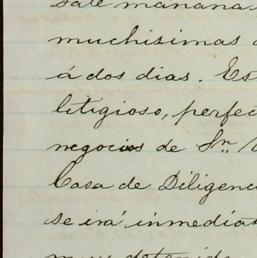 sale mañana
muchísimas
á dos dias. Es
litigioso, perfec
negocios de Sr.
Casa de Diligenci
se irá inmedia
muy detenido